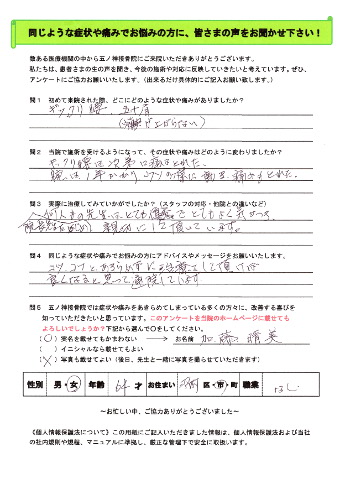 同じような症状や痛みでお悩みの方に、皆さまの声をお聞かせ下さい！
数ある医療機関の中から五ノ神接骨院にご来院いただきありがとうございます。
私たちは、患者さまの生の声を聞き、今後の施術や対応に反映していきたいと考えています。ぜひ、
アンケートにご協力お願いいたします。（出来るだけ具体的にご記入お願い致します。）
問１　初めて来院された際、どこにどのような症状や痛みがありましたか？
ギックリ腰、五十肩
が上がらない）
問２　当院で施術を受けるようになって、その症状や痛みはどのように変わりましたか？
ギックリ腰は次第に痛みはとれた。
問３　実際に治療してみていかがでしたか？（スタッフの対応・他院との違いなど）
親切にして頂いています。
問４　同じような症状や痛みでお悩みの方にアドバイスやメッセージをお願いいたします。
コツコツと、あきらめずに
良くなると思って通院しています。
問５　五ノ神接骨院では症状や痛みをあきらめてしまっている多くの方々に、改善する喜びを
知っていただきたいと思っています。このアンケートを当院のホームページに載せても
よろしいでしょうか？下記から選んで○をしてください。
（○）実名を載せてもかまわない　→　お名前　加藤　晴美
（　）イニシャルなら載せてもよい
（×）写真も載せてよい（後日、先生と一緒に写真を撮らせていただきます）
性別　男・女　年齢　64才　お住まい　区・市・町　職業　なし
～お忙しい中、ご協力ありがとうございました～
《個人情報保護法について》この用紙にご記入いただきました情報は、個人情報保護法および当社
の社内規則や規程、マニュアルに準拠し、厳正な管理下で安全に取扱います。